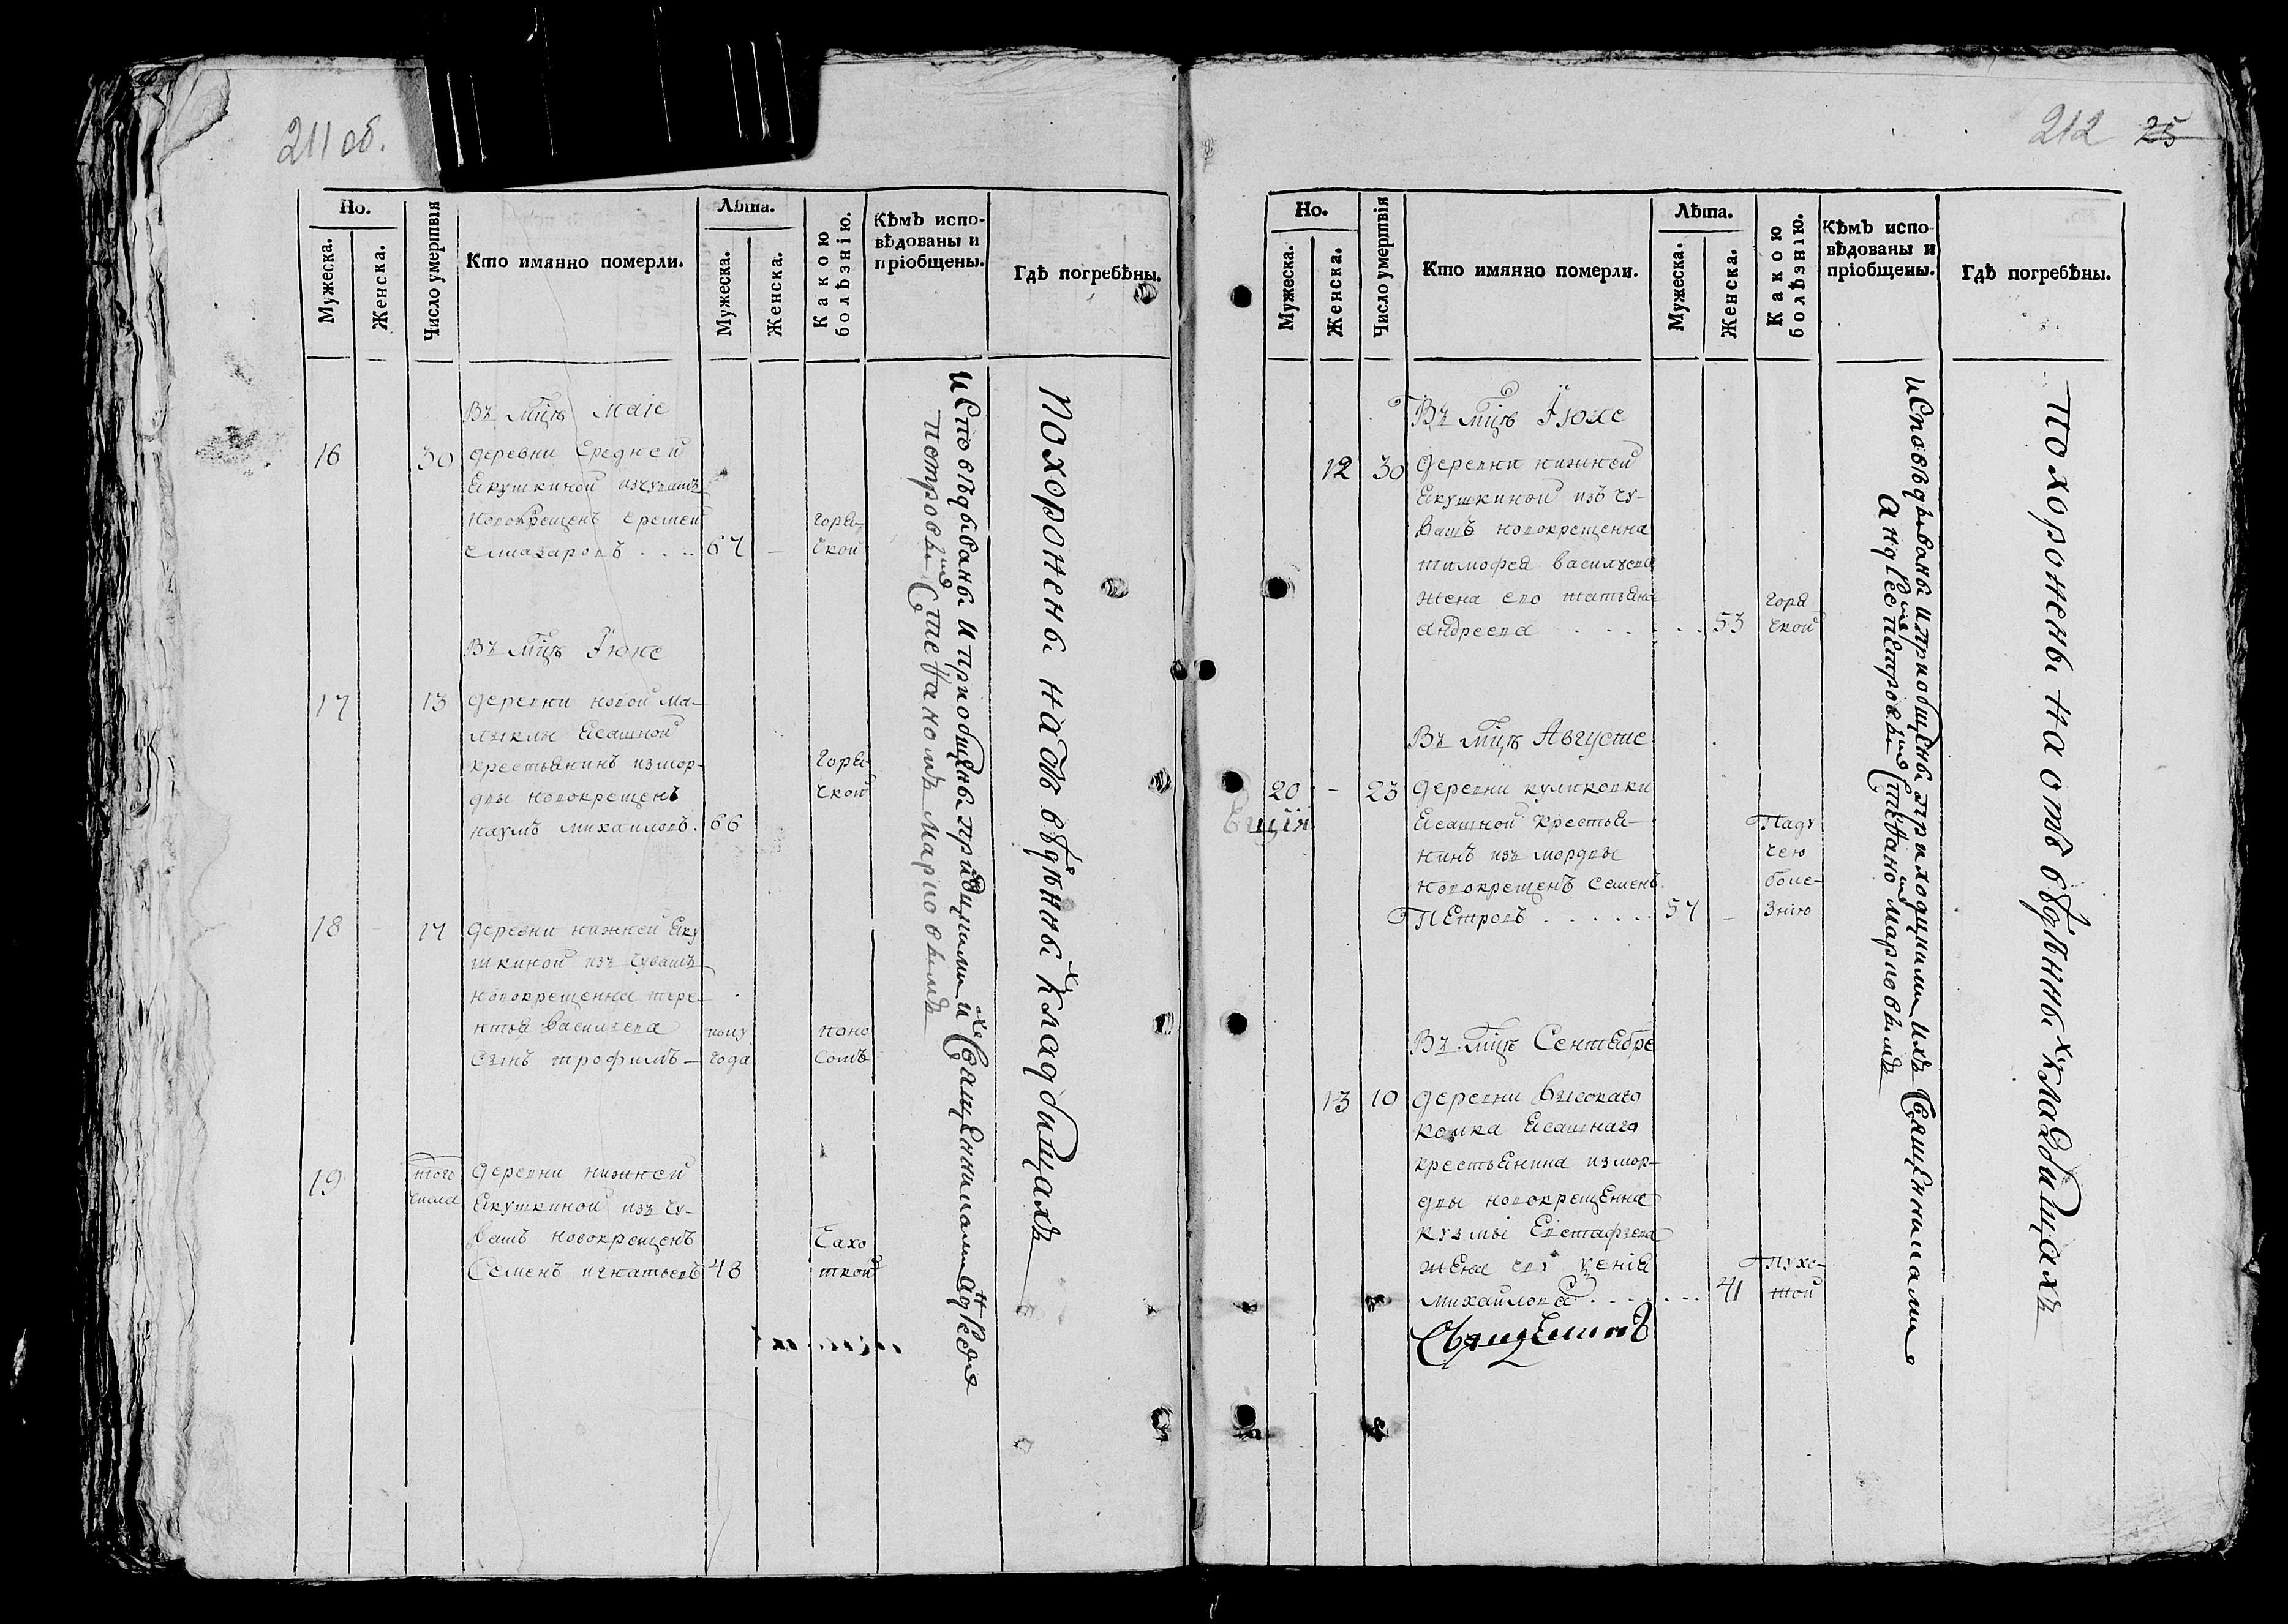 211 об.
Но.
Мужеска.
Женска.
Число умертвія
Кто имянно померли.
Лѣта.
Мужеска.
Женска.
Какою болѣзнію.
Кѣмъ испо-
вѣдованы и
пріобщены.
Гдѣ погребѣны.
Въ мцѣ маіе
16 30 деревни Средней
Якушкиной изчувашъ
новокрещенъ еремей горя-
елиазаровъ . . . . 67 – чкой
Въ мцѣ Іюне
17 13 деревни новой ма-
лыклы Ясашной
крестьянинъ измор- горя-
двы новокрещенъ чкой
наумъ михаиловъ. 66
18 17 деревни нижней Яку
шкиной изъ чувашъ
новокрещенна тере-
нтья васильева полу поно
Сынъ трофимъ – года сомъ
19 того деревни нижней
числа Якушкиной изъ чу-
вашъ новокрещенъ Чахо
Семенъ игнатьевъ 48 ткой
исповѣдываны и приобщены приходцкими ихъ Священниками Андреемъ
петровымъ Стефаномъ марковымъ
Похоронены на отъ вѣдѣнныхъ кладбищахъ
212 25
Но.
Мужеска.
Женска.
Число умертвія
Кто имянно померли.
Лѣта.
Мужеска.
Женска.
Какою болѣзнію.
Кѣмъ испо
вѣдованы и
пріобщены.
Гдѣ погребѣны.
Въ мцѣ Іюле
12 30 деревни нижней
Якушкиной изъ чу-
вашъ новокрещенна
тимофея васильева
жена его татьяна горя
андреева . . . . . . 53 чкой
Въ мцѣ Августе
20 – 23 деревни куликовки
Ясашной крестья- Паду
нинъ изъ мордвы чею
новокрещенъ Семенъ боле-
Петровъ . . . . . . 57 – знію
Въ мцѣ Сентябре
13 10 деревни высокаго
колка Ясашнаго
крестьянина измор-
двы новокрещенна
кузмы Евстафьева
жена его Пухо-
михайлова . . . . . . 41 той
Священникъ
исповѣдываны и приобщены приходцкими ихъ Священниками
Андреемъ петровымъ Стефаномъ марковымъ
Похоронены на отъ вѣдѣнныхъ кладбищахъ